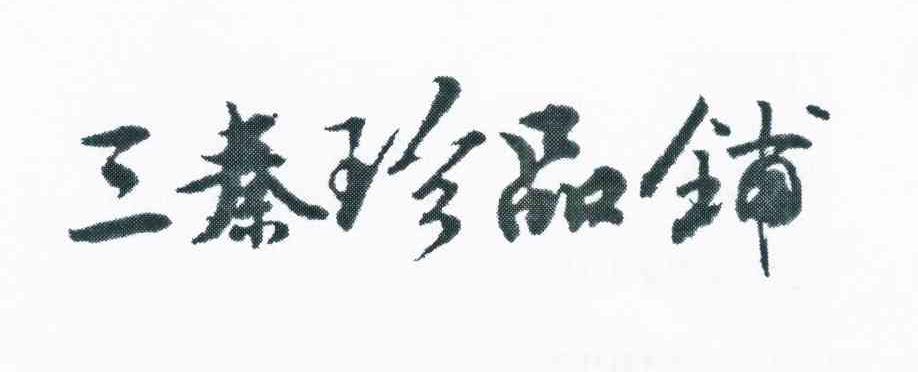 三秦珍品铺